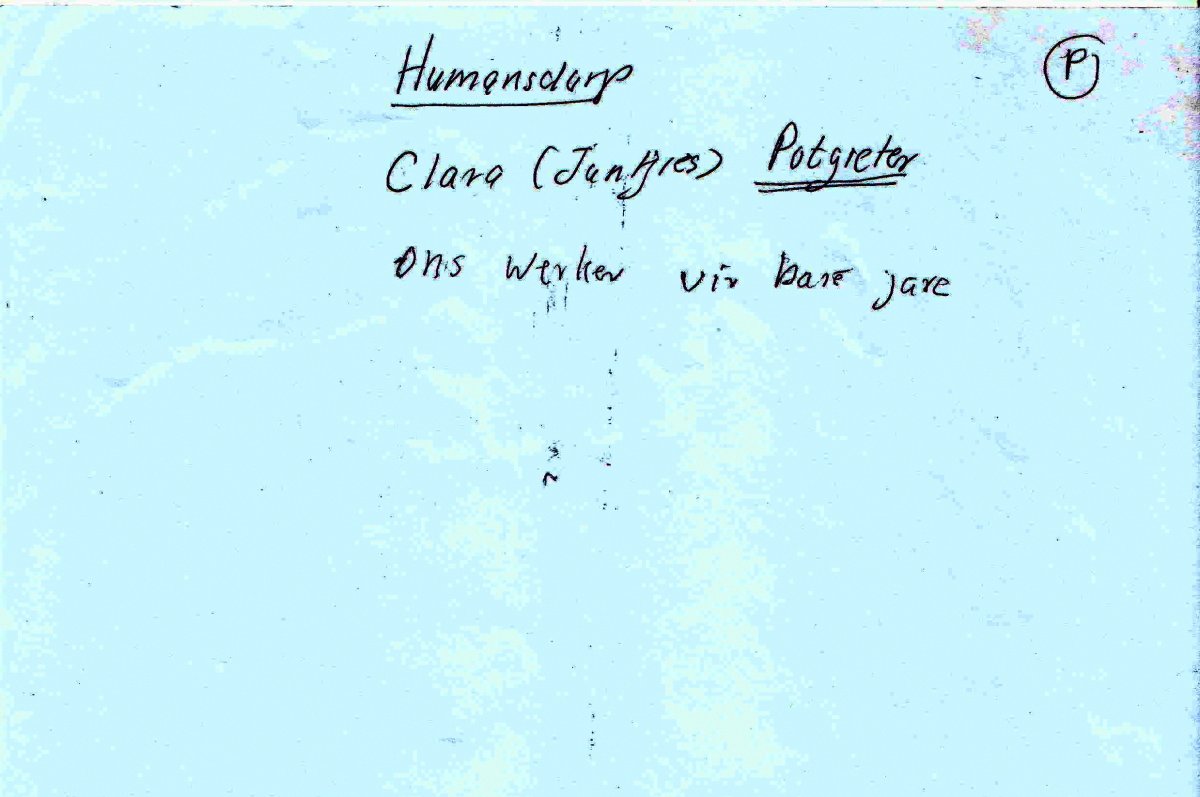 Humansdorp
P
Clara (Jantjies) Potgieter
Ons werker vir baie jare